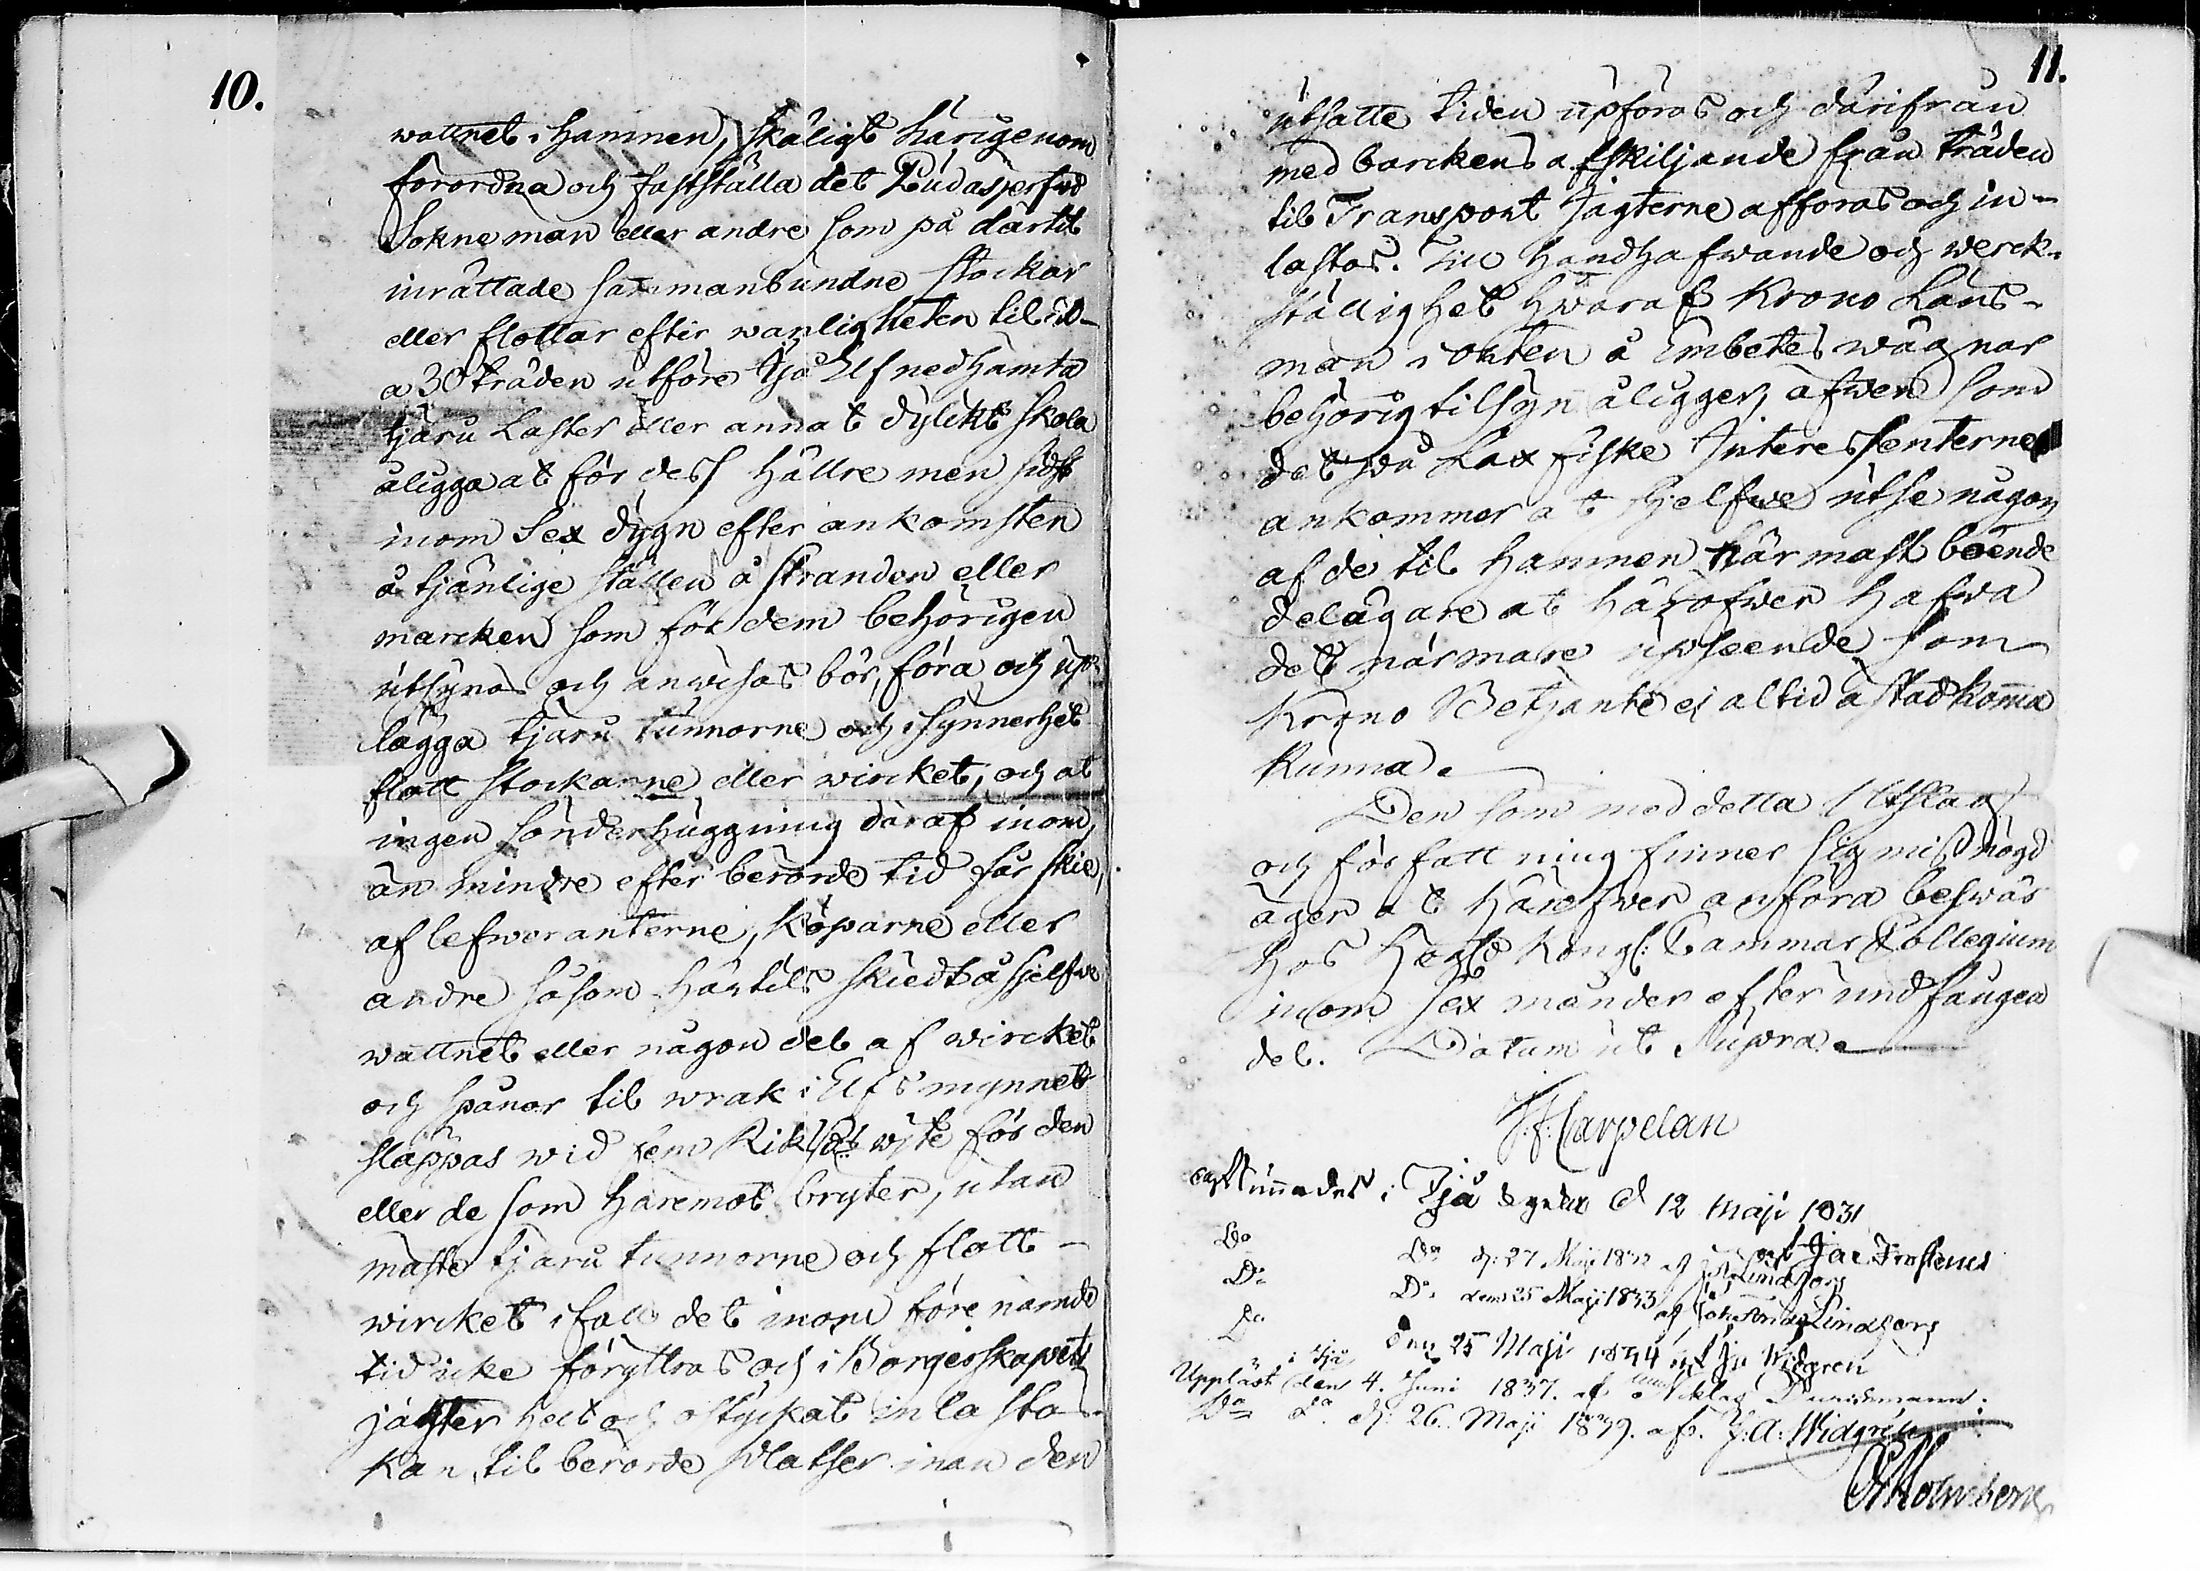 10.
wattnet i Hamnen, skäligt härigenom
förordna och fastställa det Pudasjerfwi
Sokne män eller andre som på därtil
inrättade sammanbundne stockar
eller flottar efter wanligheten til
a 30 träden utföre Ijå Elf nedhämta
tjäru Laster eller annat dylikt skola
åligga at för dess hällre men sidst
inom Sex dygn efter ankomsten
å tjänlige ställen å stranden eller
marcken som för dem behörigen
utsynas och anwisas bör, föra och up-
lägga tjäru tunnorne och i synnerhet
flott stockarne eller wircket, och at
ingen sönderhuggning däraf inom,
än mindre efter berörde tid får skie,
af lefweranterne, Köparne eller
andre såsom härtils skiedt å sjelfwe
wattnet eller någon del af wircket
och spånor til wrak i Elfs mynnet
släppas wid fem Riksd:r wite för den
eller de som häremot bryter, utan
måste tjäru tunnorne och flott-
wircket i fall det inom före nämde
tid icke föryttras och i Borgerskapets
jagter helt och ostyckat inlasta
kan, til berörde Platser inan den
11.
utsatte tiden upföras och därifrån
med barckens afskiljande från träden
til Transport Jagterne afföras och in-
lastas. Till handhafwande och werck-
ställighet hwaraf Krono Läns-
man i orten å Embetes wägnar
behörig tilsyn åligger, äfwen som
det på Lax fiske Interessenterne
ankommer at sjelfwe utse någon
af de til hamnen närmast boende
delägare at häröfwer hafwa
det närmare upseende som
Krono Betjänte ej altid åstadkomma
kunna.
Den som med detta Utslag
och författning finner sig missnögd
äger at häröfwer anföra beswär
hos Högl: Kongl: Cammar Collegium
inom sex månader efter undfången
del. Datum ut Supra.
J. F. Carpelan
i Ijå d 12 Maji 1831
af Jac Frosterus
Do Do d: 27 Maji 1832 af Lindfors
Do Do dem 25 Maji 1833 af Lindfors
Do den 25 Maji 1834 af Widgren
Uppläst i Ijå den 4. Juni 1837. af Niklas
Do Do d: 26 Maji 1839. af. J: A: Widgrén
Holmberg